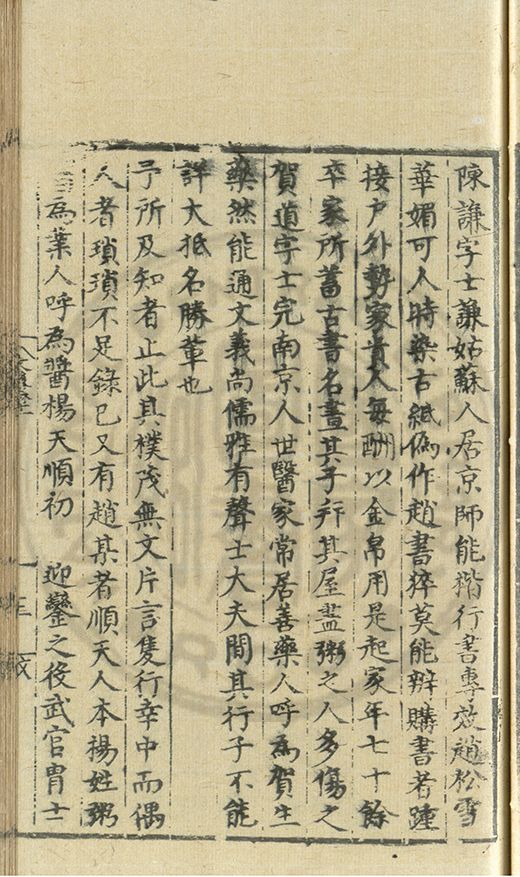 陳謙字士謙姑蘇人居京師能楷行書專效趙松雪
華媚可人時染古紙偽作趙書猝莫能辨購書者踵
接户外勢家貴人每酬以金帛用是起家年七十餘
卒家所蓄古書名畫其子并其屋盡粥之人多傷之
賀道字士完南京人世醫家常居善藥人呼為賀生
藥然能通文義尚儒雅有聲士大夫間其行予不能
詳大抵名勝軰也
予所及知者止此其樸茂無文片言隻行幸中而偶
人者瑣瑣不足錄已又有趙某者順天人本楊姓粥
為業人呼為醬楊天順初 迎鑾之役武官冑士